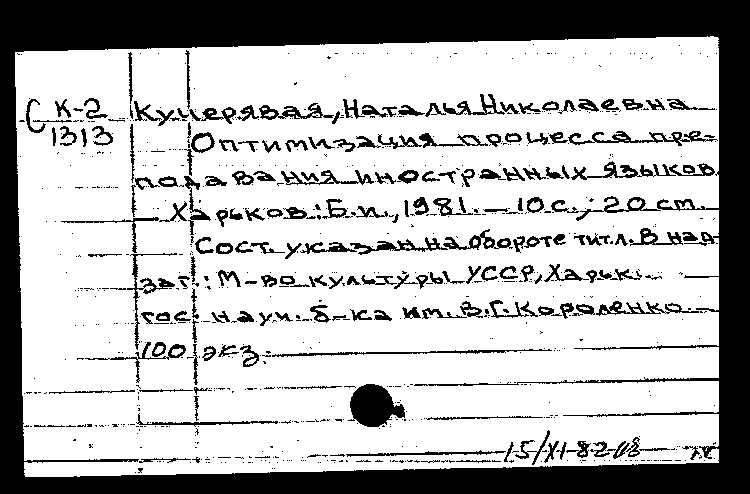 С К-2 Кучерявая, Наталья Николаевна
1313 Оптимизация процесса пре-
подавания иностранных языков.
— Харьков: Б.и., 1981. — 10 с.; 20 см.
Сост. указан на обороте тит.л. В над-
заг.: М-во культуры УССР, Харьк.
гос. науч. б-ка им. В.Г. Короленко.
100 экз.
15/XI-82